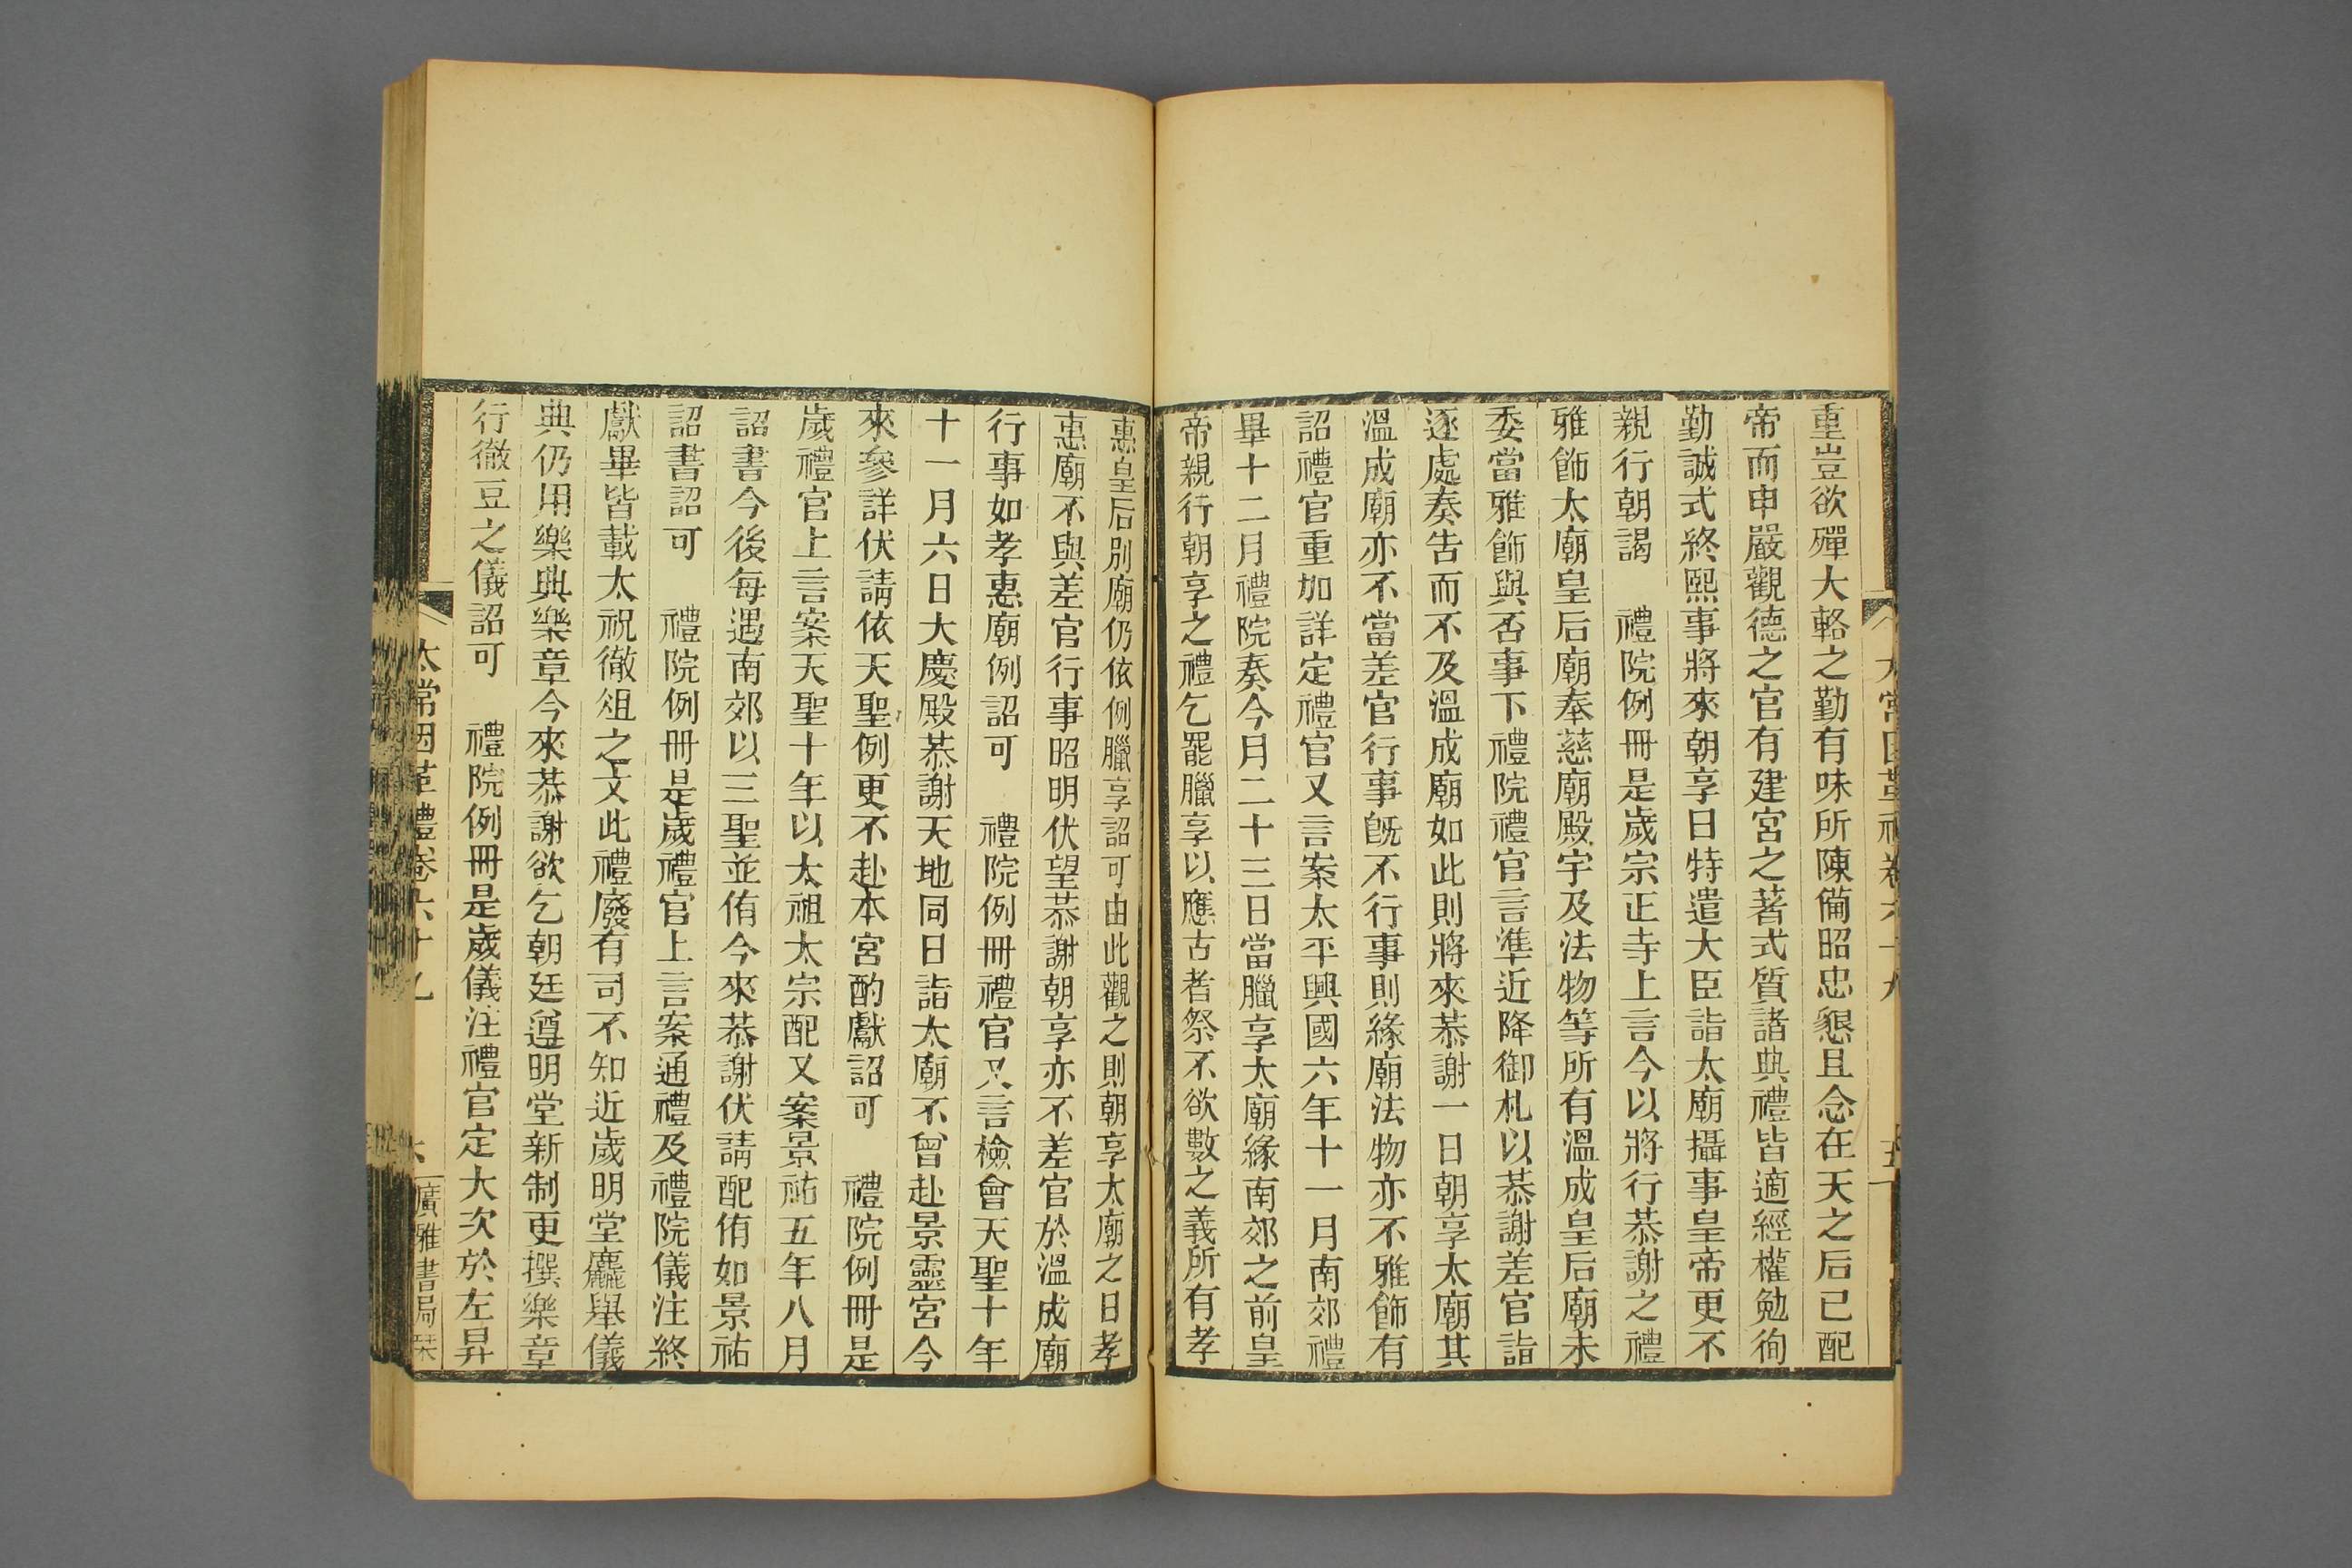 重豈欲殫大輅之勤有味所陳備昭忠懇且念在天之后已配
帝而申嚴觀德之官有建宮之著式質諸典禮皆適經權勉徇
勤誠式終熙事將來朝享日特遣大臣詣太廟攝事皇帝更不
親行朝謁　禮院例冊是歲宗正寺上言今以將行恭謝之禮
雅飾太廟皇后廟奉慈廟殿宇及法物等所有溫成皇后廟未
委當雅飾與否事下禮院禮官言準近降御札以恭謝差官詣
逐處奏告而不及溫成廟如此則將來恭謝一日朝享太廟其
溫成廟亦不當差官行事旣不行事則緣廟法物亦不雅飾有
詔禮官重加詳定禮官又言案太平興國六年十一月南郊禮
畢十二月禮院奏今月二十三日當臘享太廟緣南郊之前皇
帝親行朝享之禮乞罷臘享以應古者祭不欲數之義所有孝
惠皇后別廟仍依例臘享詔可由此觀之則朝享太廟之日孝
惠廟不與差官行事昭明伏望恭謝朝享亦不差官於溫成廟
行事如孝惠廟例詔可　禮院例冊禮官又言檢會天聖十年
十一月六日大慶殿恭謝天地同日詣太廟不曾赴景靈宮今
來參詳伏請依天聖例更不赴本宮酌獻詔可　禮院例冊是
歲禮官上言案天聖十年以太祖太宗配又案景祐五年八月
詔書今後每遇南郊以三聖並侑今來恭謝伏請配侑如景祐
詔書詔可　禮院例冊是歲禮官上言案通禮及禮院儀注終
獻畢皆載太祝徹俎之文此禮廢有司不知近歲明堂麤舉儀
典仍用樂典樂章今來恭謝欲乞朝廷遵明堂新制更撰樂章
行徹豆之儀詔可　禮院例冊是歲儀注禮官定大次於左昇
太常因革禮卷六十九
廣雅書局栞